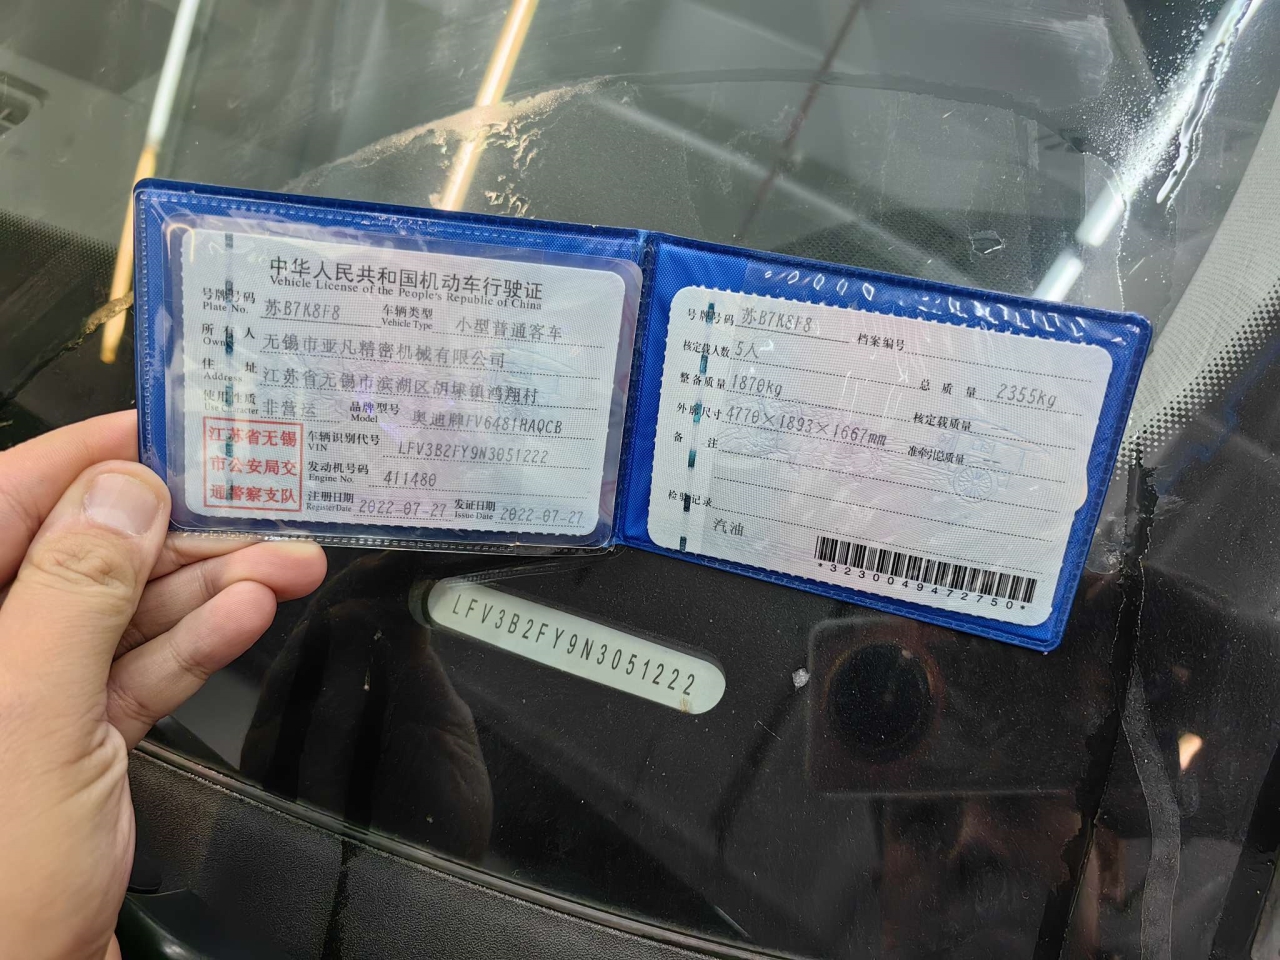 中华人民共和国机动车行驶证
Vehicle License of the People's Republic of China
号牌号码 苏B7K8F8 车辆类型 小型普通客车
Plate No. Vehicle Type
所有人 无锡市亚凡精密机械有限公司
Owner
住址 江苏省无锡市滨湖区胡埭镇鸿翔村
Address
使用性质 非营运 品牌型号 奥迪牌FV6481HAQCB
Use Character Model
江苏省无锡
市公安局交
通警察支队
车辆识别代号 LFV3B2FY9N3051222
VIN
发动机号码 411480
Engine No.
注册日期 2022-07-27 发证日期 2022-07-27
Register Date Issue Date
号牌号码 苏B7K8F8 档案编号
核定载人数 5人 总质量 2355kg
整备质量 1870kg 核定载质量
外廓尺寸 4770×1893×1667mm 准牵引总质量
备注
检验记录
汽油
*3230049472750*
LFV3B2FY9N3051222